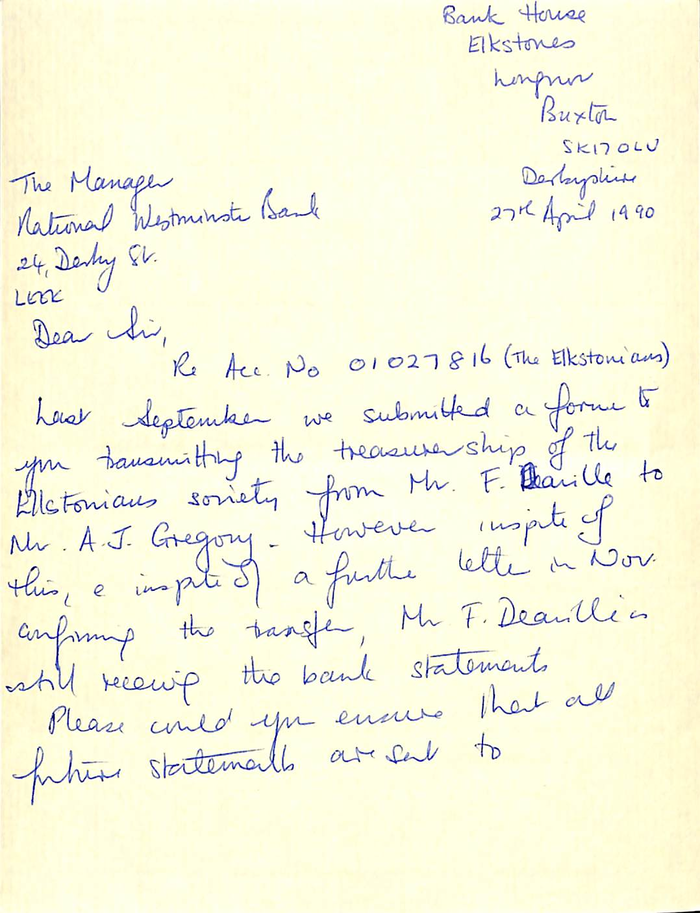 Bank House
Elkstones
Longnor
Buxton
SK17 0LU
Derbyshire
27th April 1990
The Manager
National Westminster Bank
24, Derby St.
LEEK
Dear Sir,
Re Acc. No 01027816 (The Elkstonians)
Last September we submitted a form to
you transmitting the treasurership of the
Elkstonians society from Mr. F. Deaville to
Mr. A.J. Gregory. However inspite of
this, & inspite of a further letter in Nov.
confirming the transfer, Mr F. Deaville is
still receiving the bank statements
Please could you ensure that all
future statements are sent to